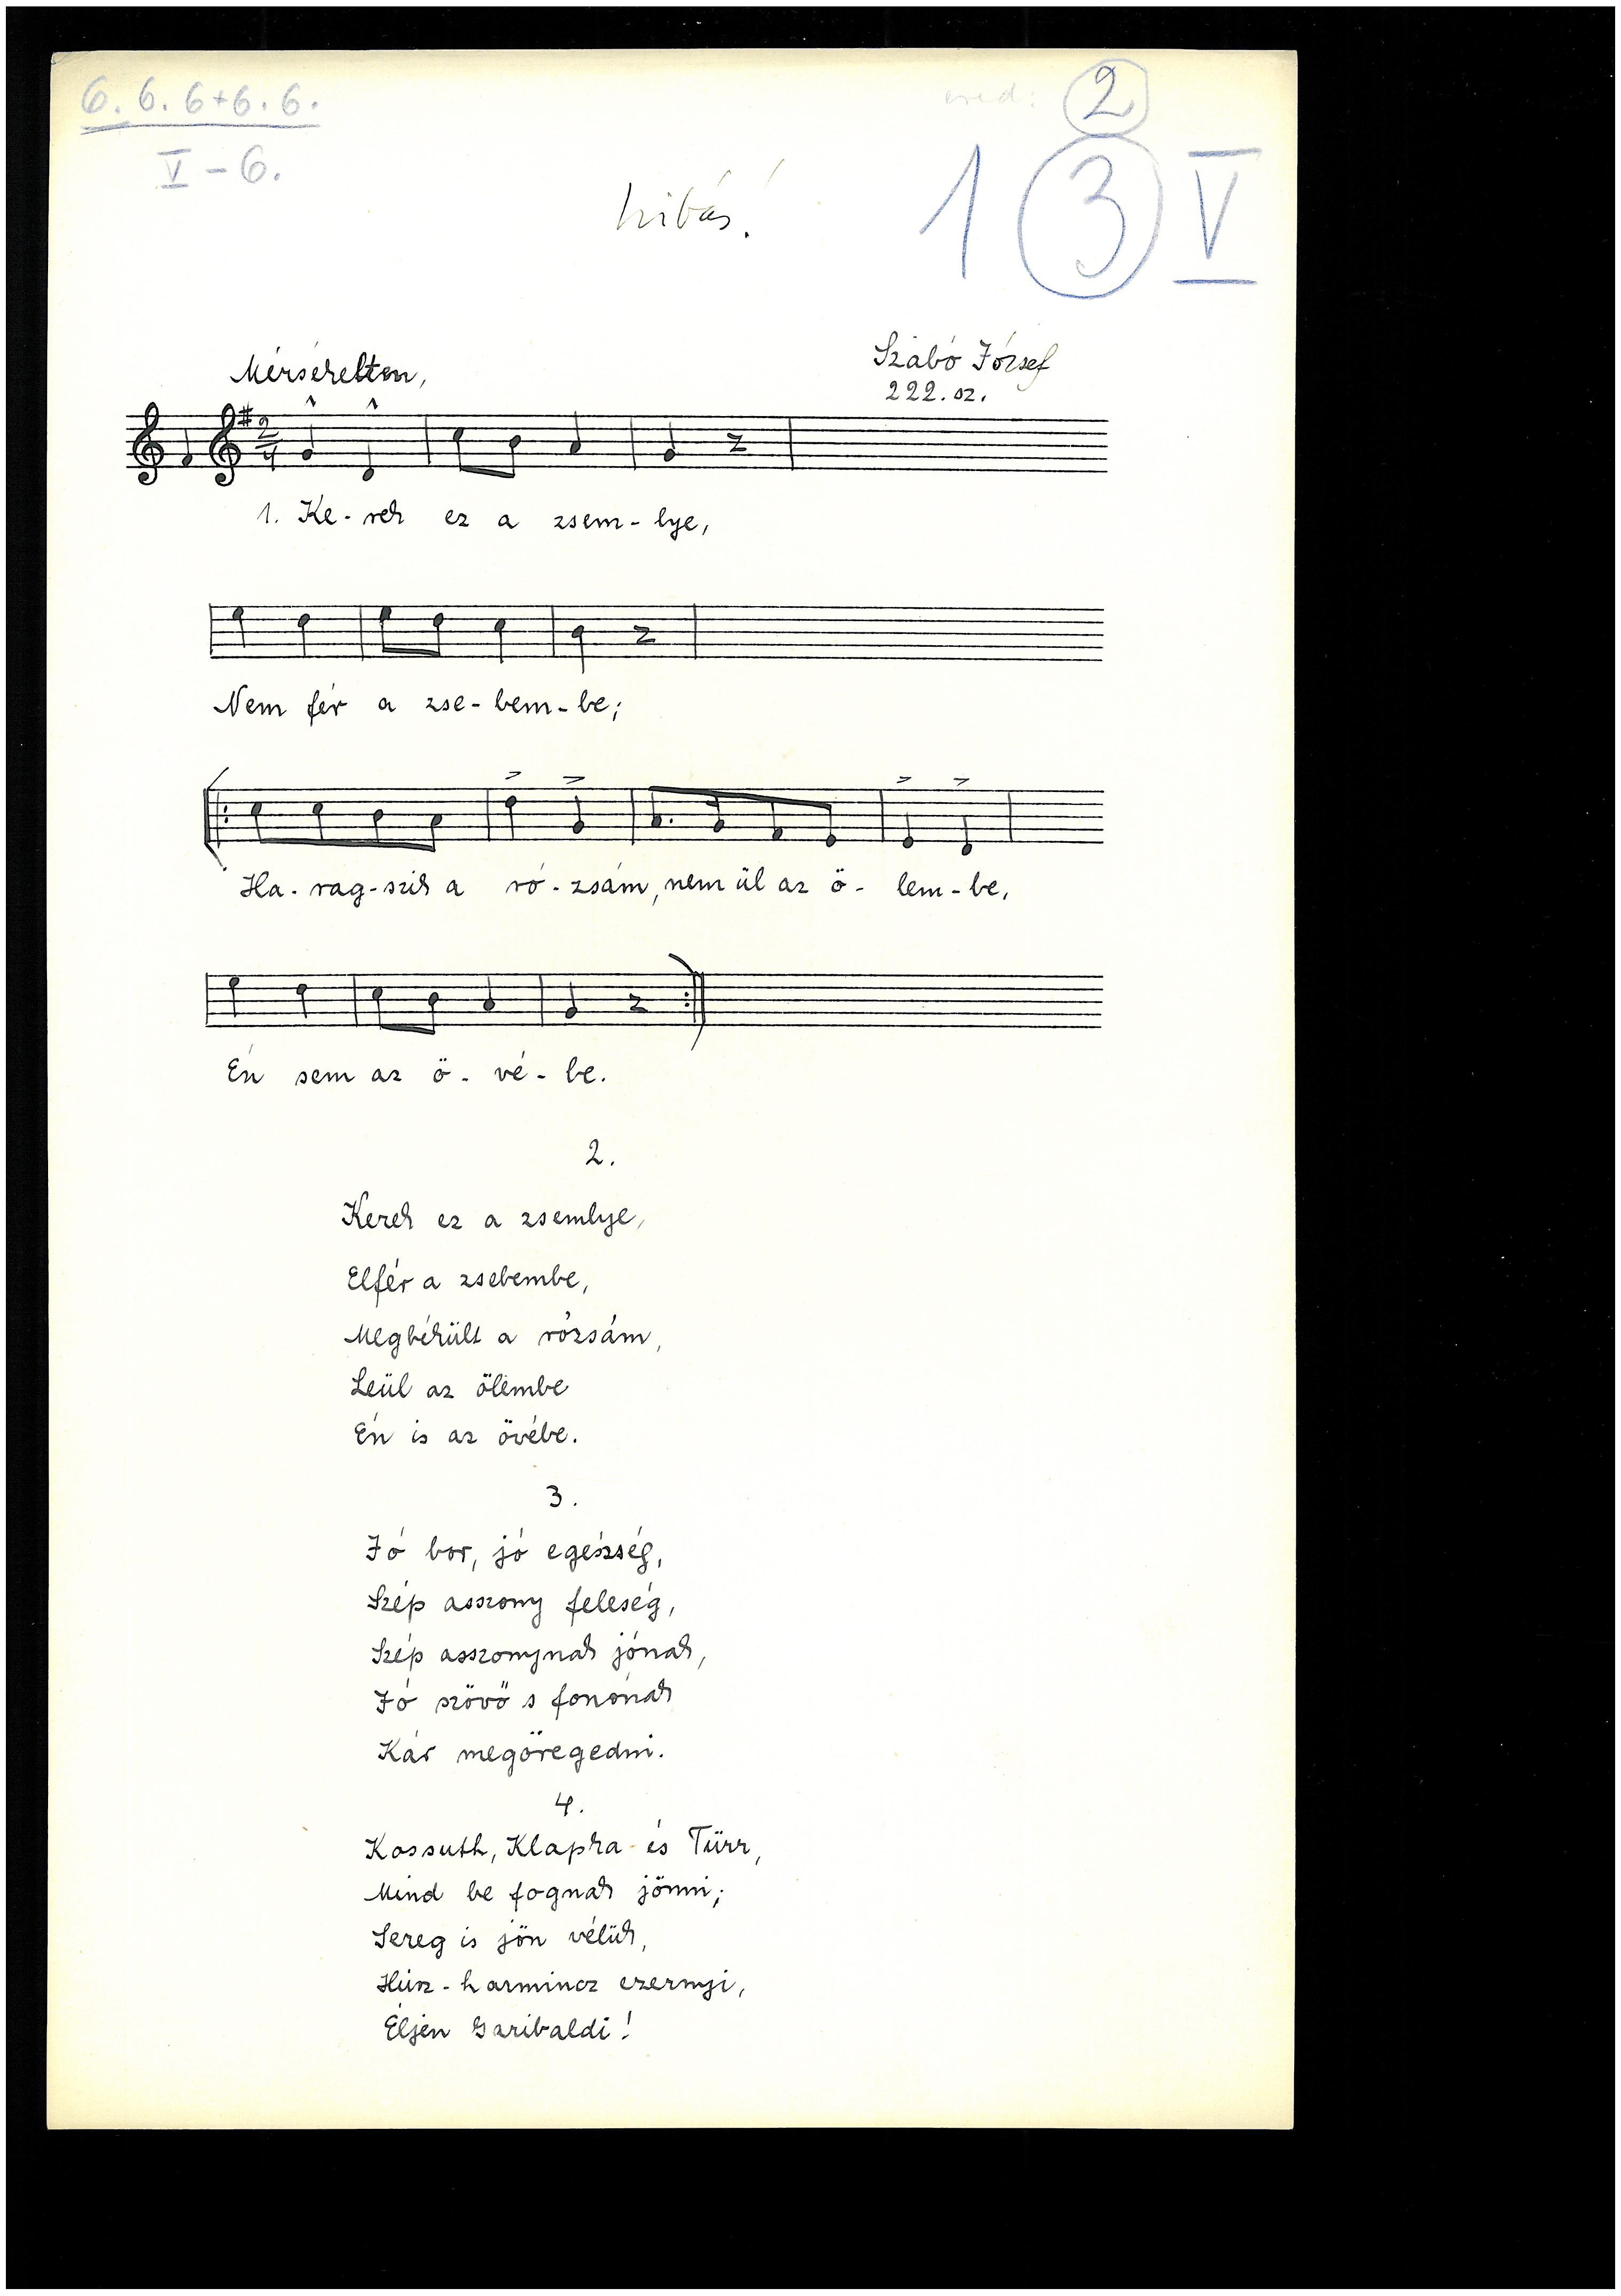 6. 6. 6+6. 6.
V - 6.
ered: 2
hibás!
1 3 V
Mérsékelten,
Szabó József
222. sz.
2/4
1. Ke - rek ez a zsem - lye,
Nem fér a zse - bem - be;
Ha - rag - szik a ró - zsám, nem ül az ö - lem - be,
Én sem az ö - vé - be.
2.
Kerek ez a zsemlye,
Elfér a zsebembe,
Megbékült a rózsám,
Leül az ölembe
Én is az övébe.
3.
Jó bor, jó egészség,
Szép asszony feleség,
Szép asszonynak jónak,
Jó szövő s fonónak
Kár megöregedni.
4.
Kossuth, Klapka és Türr,
Mind be fognak jönni;
Sereg is jön vélük,
Húsz - harmincz ezernyi,
Éljen Garibaldi!